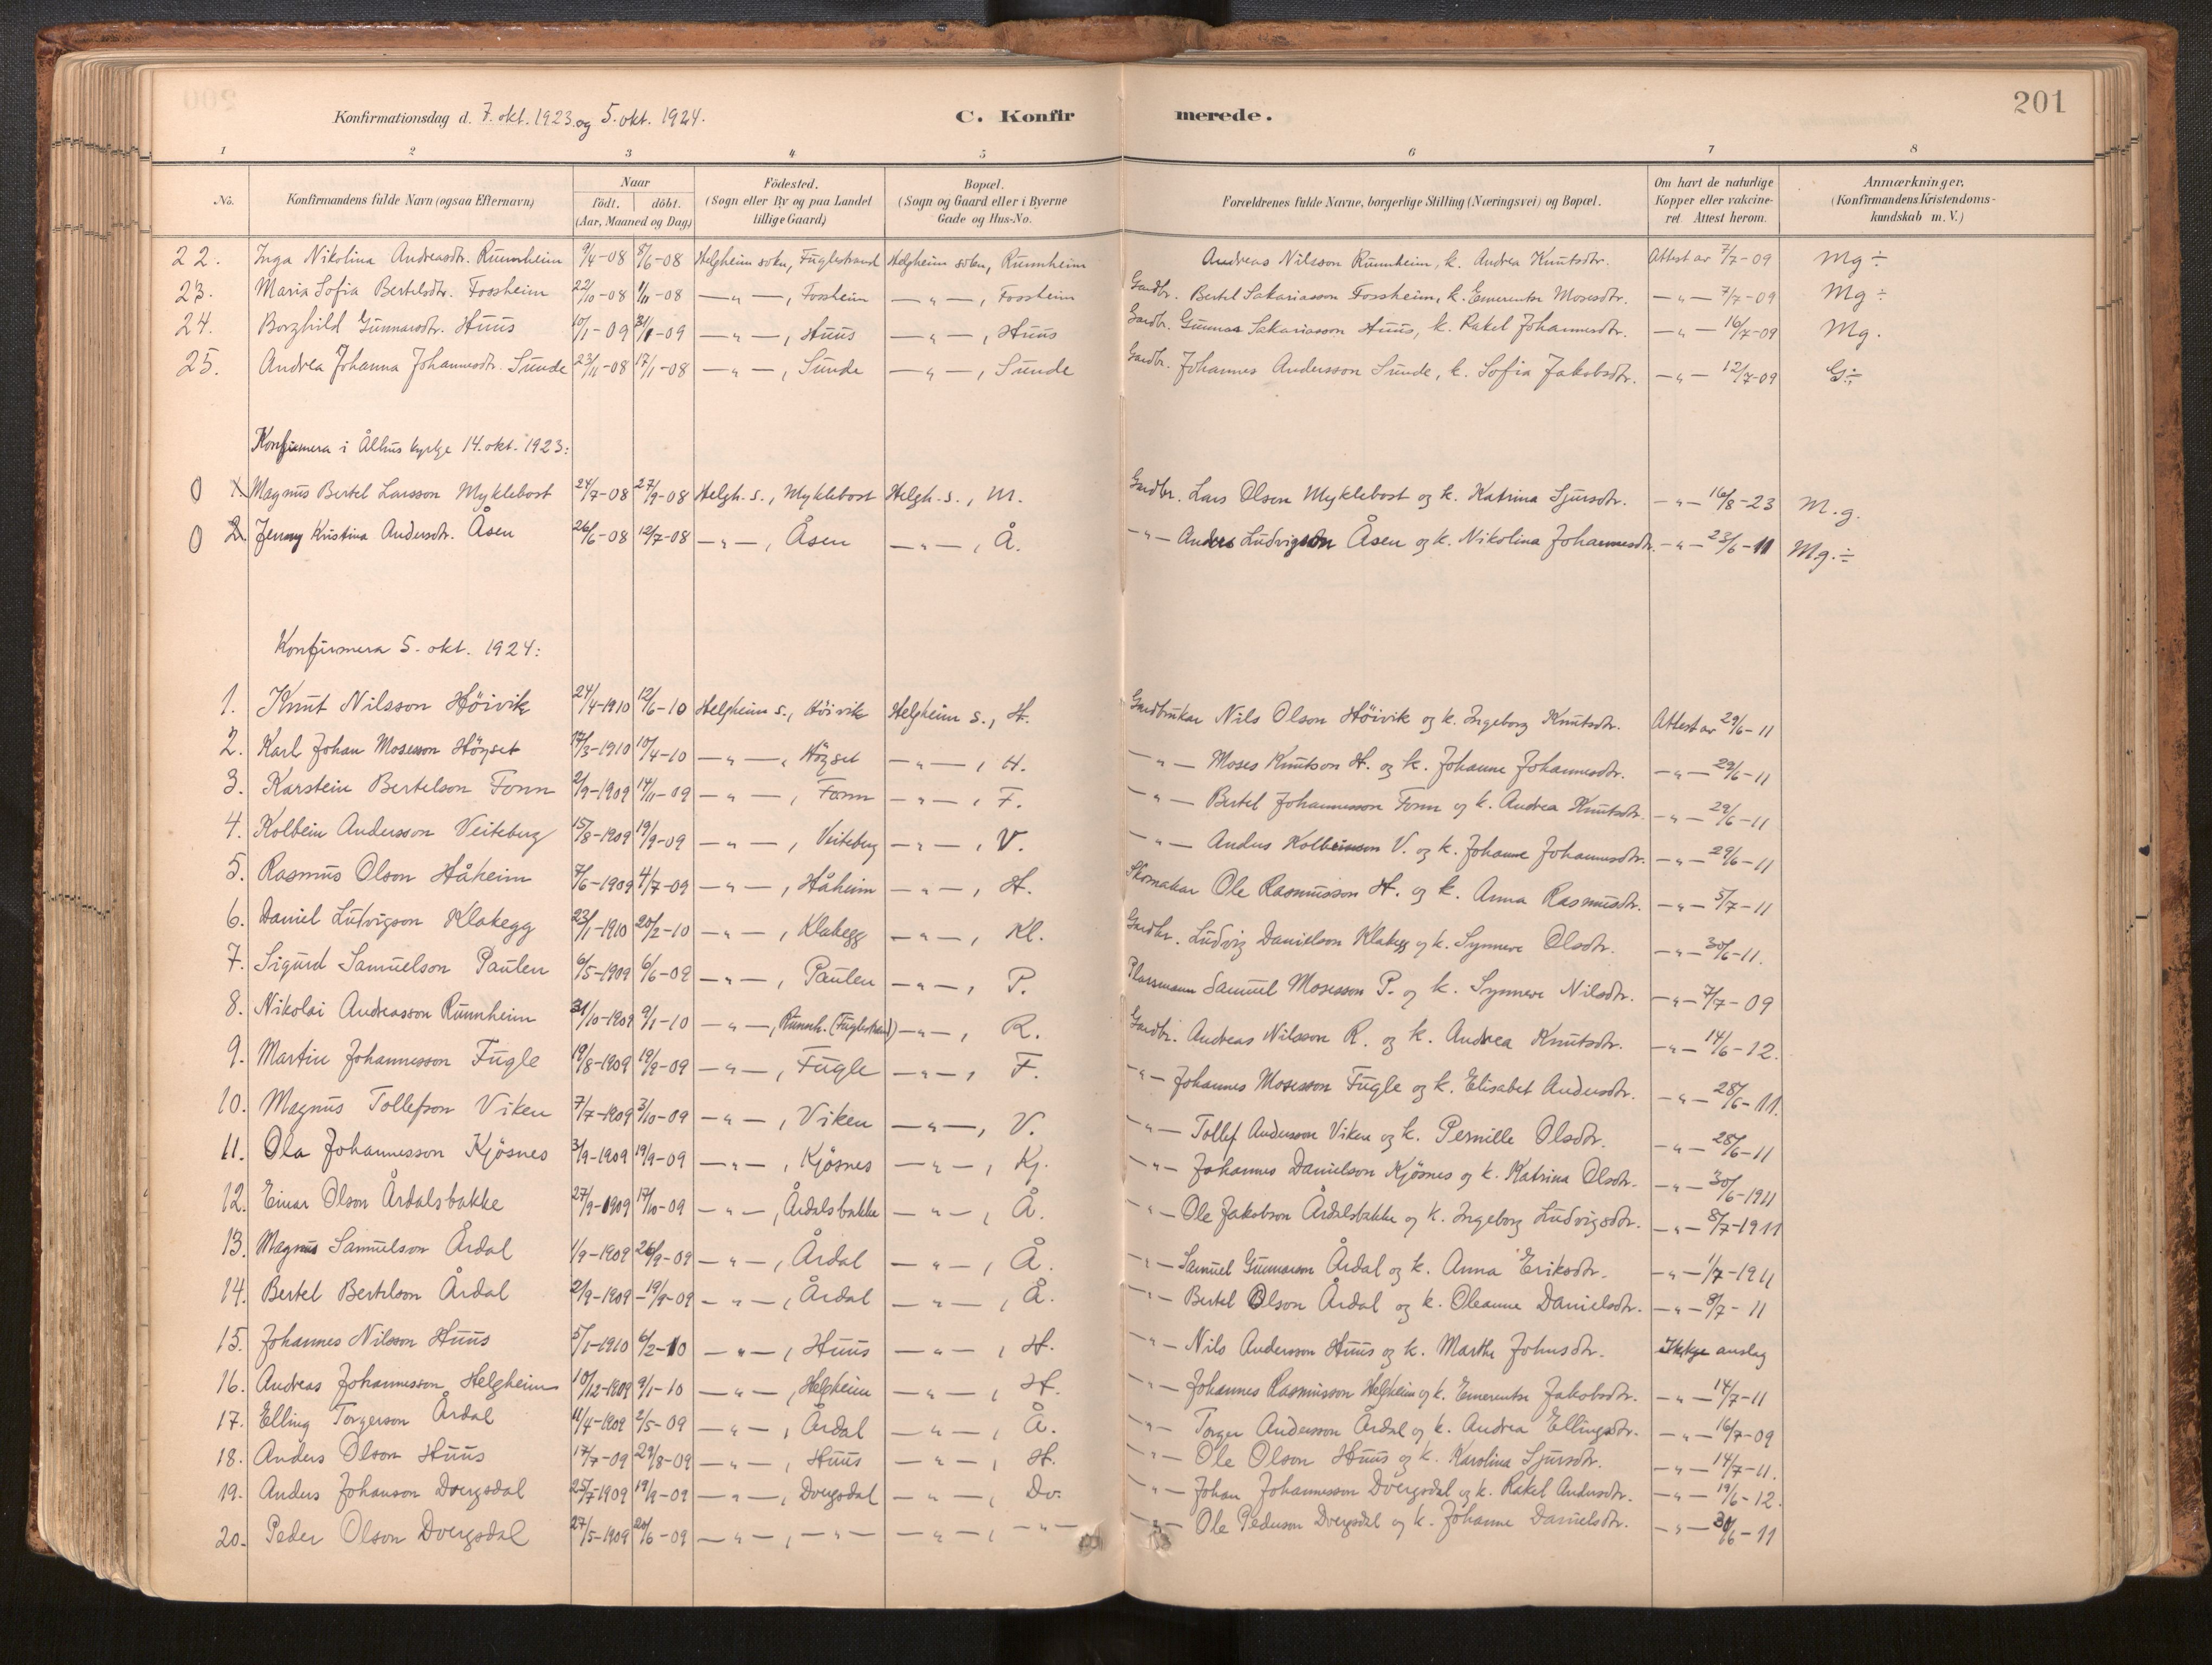 201
Konfirmationsdag d. 7. okt. 1923 og 5. okt. 1924.
C. Konfirmerede.
1 2 3 4 5 6 7 8
No. Konfirmandens fulde Navn (ogsaa Efternavn) Naar födt. döbt. (Aar, Maaned og Dag) Födested. (Sogn eller By og paa Landet tillige Gaard) Bopæl. (Sogn og Gaard eller i Byerne Gade og Hus-No. Forældrenes fulde Navne, borgerlige Stilling (Næringsvei) og Bopæl. Om havt de naturlige Kopper eller vakcineret. Attest herom. Anmærkninger. (Konfirmandens Kristendomskundskab m. V.)
22. Inga Nikolina Andreasdtr. Runnheim 9/4-08 8/6-08 Helgheim sokn, Fuglestrand Helgheim sokn, Runnheim Andreas Nilsson Runnheim, k. Andrea Knutsdtr. Attest av 7/7-09 Mg ÷
23. Maria Sofia Bertelsdtr. Fossheim 22/10-08 1/11-08 —"—, Fossheim —"—, Fossheim Gardbr. Bertel Sakariasson Fossheim, k. Emerentse Mosesdtr. —"— 7/7-09 Mg ÷
24. Borghild Gunnarsdtr. Huus 10/1-09 31/1-09 —"—, Huus —"—, Huus Gardbr. Gunnar Sakariasson Huus, k. Rakel Johannesdtr. —"— 16/7-09 Mg.
25. Andrea Johanna Johannesdtr. Sunde 23/11-08 17/1-08 —"—, Sunde —"—, Sunde Gardbr. Johannes Andersson Sunde, k. Sofia Jakobsdtr. —"— 12/7-09 G÷
Konfirmera i Ålhus kyrkje 14. okt. 1923:
0 1. Magnus Bertel Larsson Myklebost 24/7-08 27/9-08 Helgh. s., Myklebost Helgh. s., M. Gardbr. Lars Olsen Myklebost og k. Katrina Sjursdtr. —"— 16/8-23 M.g.
0 2. Jenny Kristina Andersdtr. Åsen 26/6-08 12/7-08 —"—, Åsen —"—, Å. —"— Anders Ludvigson Åsen og k. Nikolina Johannesdtr. —"— 23/6-11 Mg. ÷
Konfirmera 5. okt. 1924:
1. Knut Nilsson Höivik 24/4-1910 12/6-10 Helgheim s., Höivik Helgheim s., H. Gardbrukar Nils Olson Höivik og k. Ingeborg Knutsdtr. Attest av 29/6-11
2. Karl Johan Mosesson Högset 17/3-1910 10/4-10 —"—, Högset —"—, H. —"— Moses Knutson H. og k. Johanne Johannesdtr. —"— 29/6-11
3. Karstein Bertelson Fonn 2/9-1909 14/11-09 —"—, Fonn —"—, F. —"— Bertel Johannesson Fonn og k. Andrea Knutsdtr. —"— 29/6-11
4. Kolbein Andersson Veiteberg 15/8-1909 19/9-09 —"—, Veiteberg —"—, V. —"— Anders Kolbeinson V. og k. Johanne Johannesdtr. —"— 29/6-11
5. Rasmus Olson Håheim 7/6-1909 4/7-09 —"—, Håheim —"—, H. Skomakar Ole Rasmusson H. og k. Anna Rasmusdtr. —"— 5/7-11
6. Daniel Ludvigson Klakegg 23/1-1910 20/2-10 —"—, Klakegg —"—, Kl. Gardbr. Ludvig Danielson Klakegg og k. Synneve Olsdtr. —"— 30/6-11.
7. Sigurd Samuelson Paulen 6/5-1909 6/6-09 —"—, Paulen —"—, P. Plassmann Samuel Mosesson P. og k. Synneve Nilsdtr. —"— 7/7-09
8. Nikolai Andreasson Runnheim 31/10-1909 9/1-10 —"—, Runnh. (Fuglestrand) —"—, R. Gardbr. Andreas Nilsson R. og k. Andrea Knutsdtr. —"— 14/6-12.
9. Martin Johannesson Fugle 19/8-1909 19/9-09 —"—, Fugle —"—, F. —"— Johannes Mosesson Fugle og k. Elisabet Andersdtr. —"— 28/6-11.
10. Magnus Tollefson Viken 7/7-1909 3/10-09 —"—, Viken —"—, V. —"— Tollef Andersson Viken og k. Pernille Olsdtr. —"— 28/6-11
11. Ola Johannesson Kjösnes 3/9-1909 19/9-09 —"—, Kjösnes —"—, Kj. —"— Johannes Danielson Kjösnes og k. Katrina Olsdtr. —"— 30/6-1911
12. Einar Olson Årdalsbakke 27/9-1909 17/10-09 —"—, Årdalsbakke —"—, Å. —"— Ole Jakobson Årdalsbakke og k. Ingeborg Ludvigsdtr. —"— 8/7-1911
13. Magnus Samuelson Årdal 1/9-1909 26/9-09 —"—, Årdal —"—, Å. —"— Samuel Gunnarson Årdal og k. Anna Eriksdtr. —"— 1/7-1911
14. Bertel Bertelson Årdal 2/9-1909 19/9-09 —"—, Årdal —"—, Å. —"— Bertel Olson Årdal og k. Oleanne Danielsdtr. —"— 8/7-11
15. Johannes Nilsson Huus 5/1-1910 6/2-10 —"—, Huus —"—, H. —"— Nils Andersson Huus og k. Marthe Johnsdtr. Ikkje anslag
16. Andreas Johannesson Helgheim 10/12-1909 9/1-10 —"—, Helgheim —"—, H. —"— Johannes Rasmusson Helgheim og k. Emerentse Jakobsdtr. —"— 14/7-11
17. Elling Torgerson Årdal 11/4-1909 2/5-09 —"—, Årdal —"—, Å. —"— Torger Andersson Årdal og k. Andrea Ellingsdtr. —"— 16/7-09
18. Anders Olson Huus 17/7-09 29/8-09 —"—, Huus —"—, H. —"— Ole Olson Huus og k. Karolina Sjursdtr. —"— 14/7-11.
19. Anders Johanson Dvergsdal 25/7-1909 19/9-09 —"—, Dvergsdal —"—, Dv. —"— Johan Johannesson Dvergsdal og k. Rakel Andersdtr. —"— 19/6-12.
20. Peder Olson Dvergsdal 27/5-1909 20/6-09 —"—, —"— —"—, —"— —"— Ole Pederson Dvergsdal og k. Johanne Danielsdtr. —"— 30/6-11